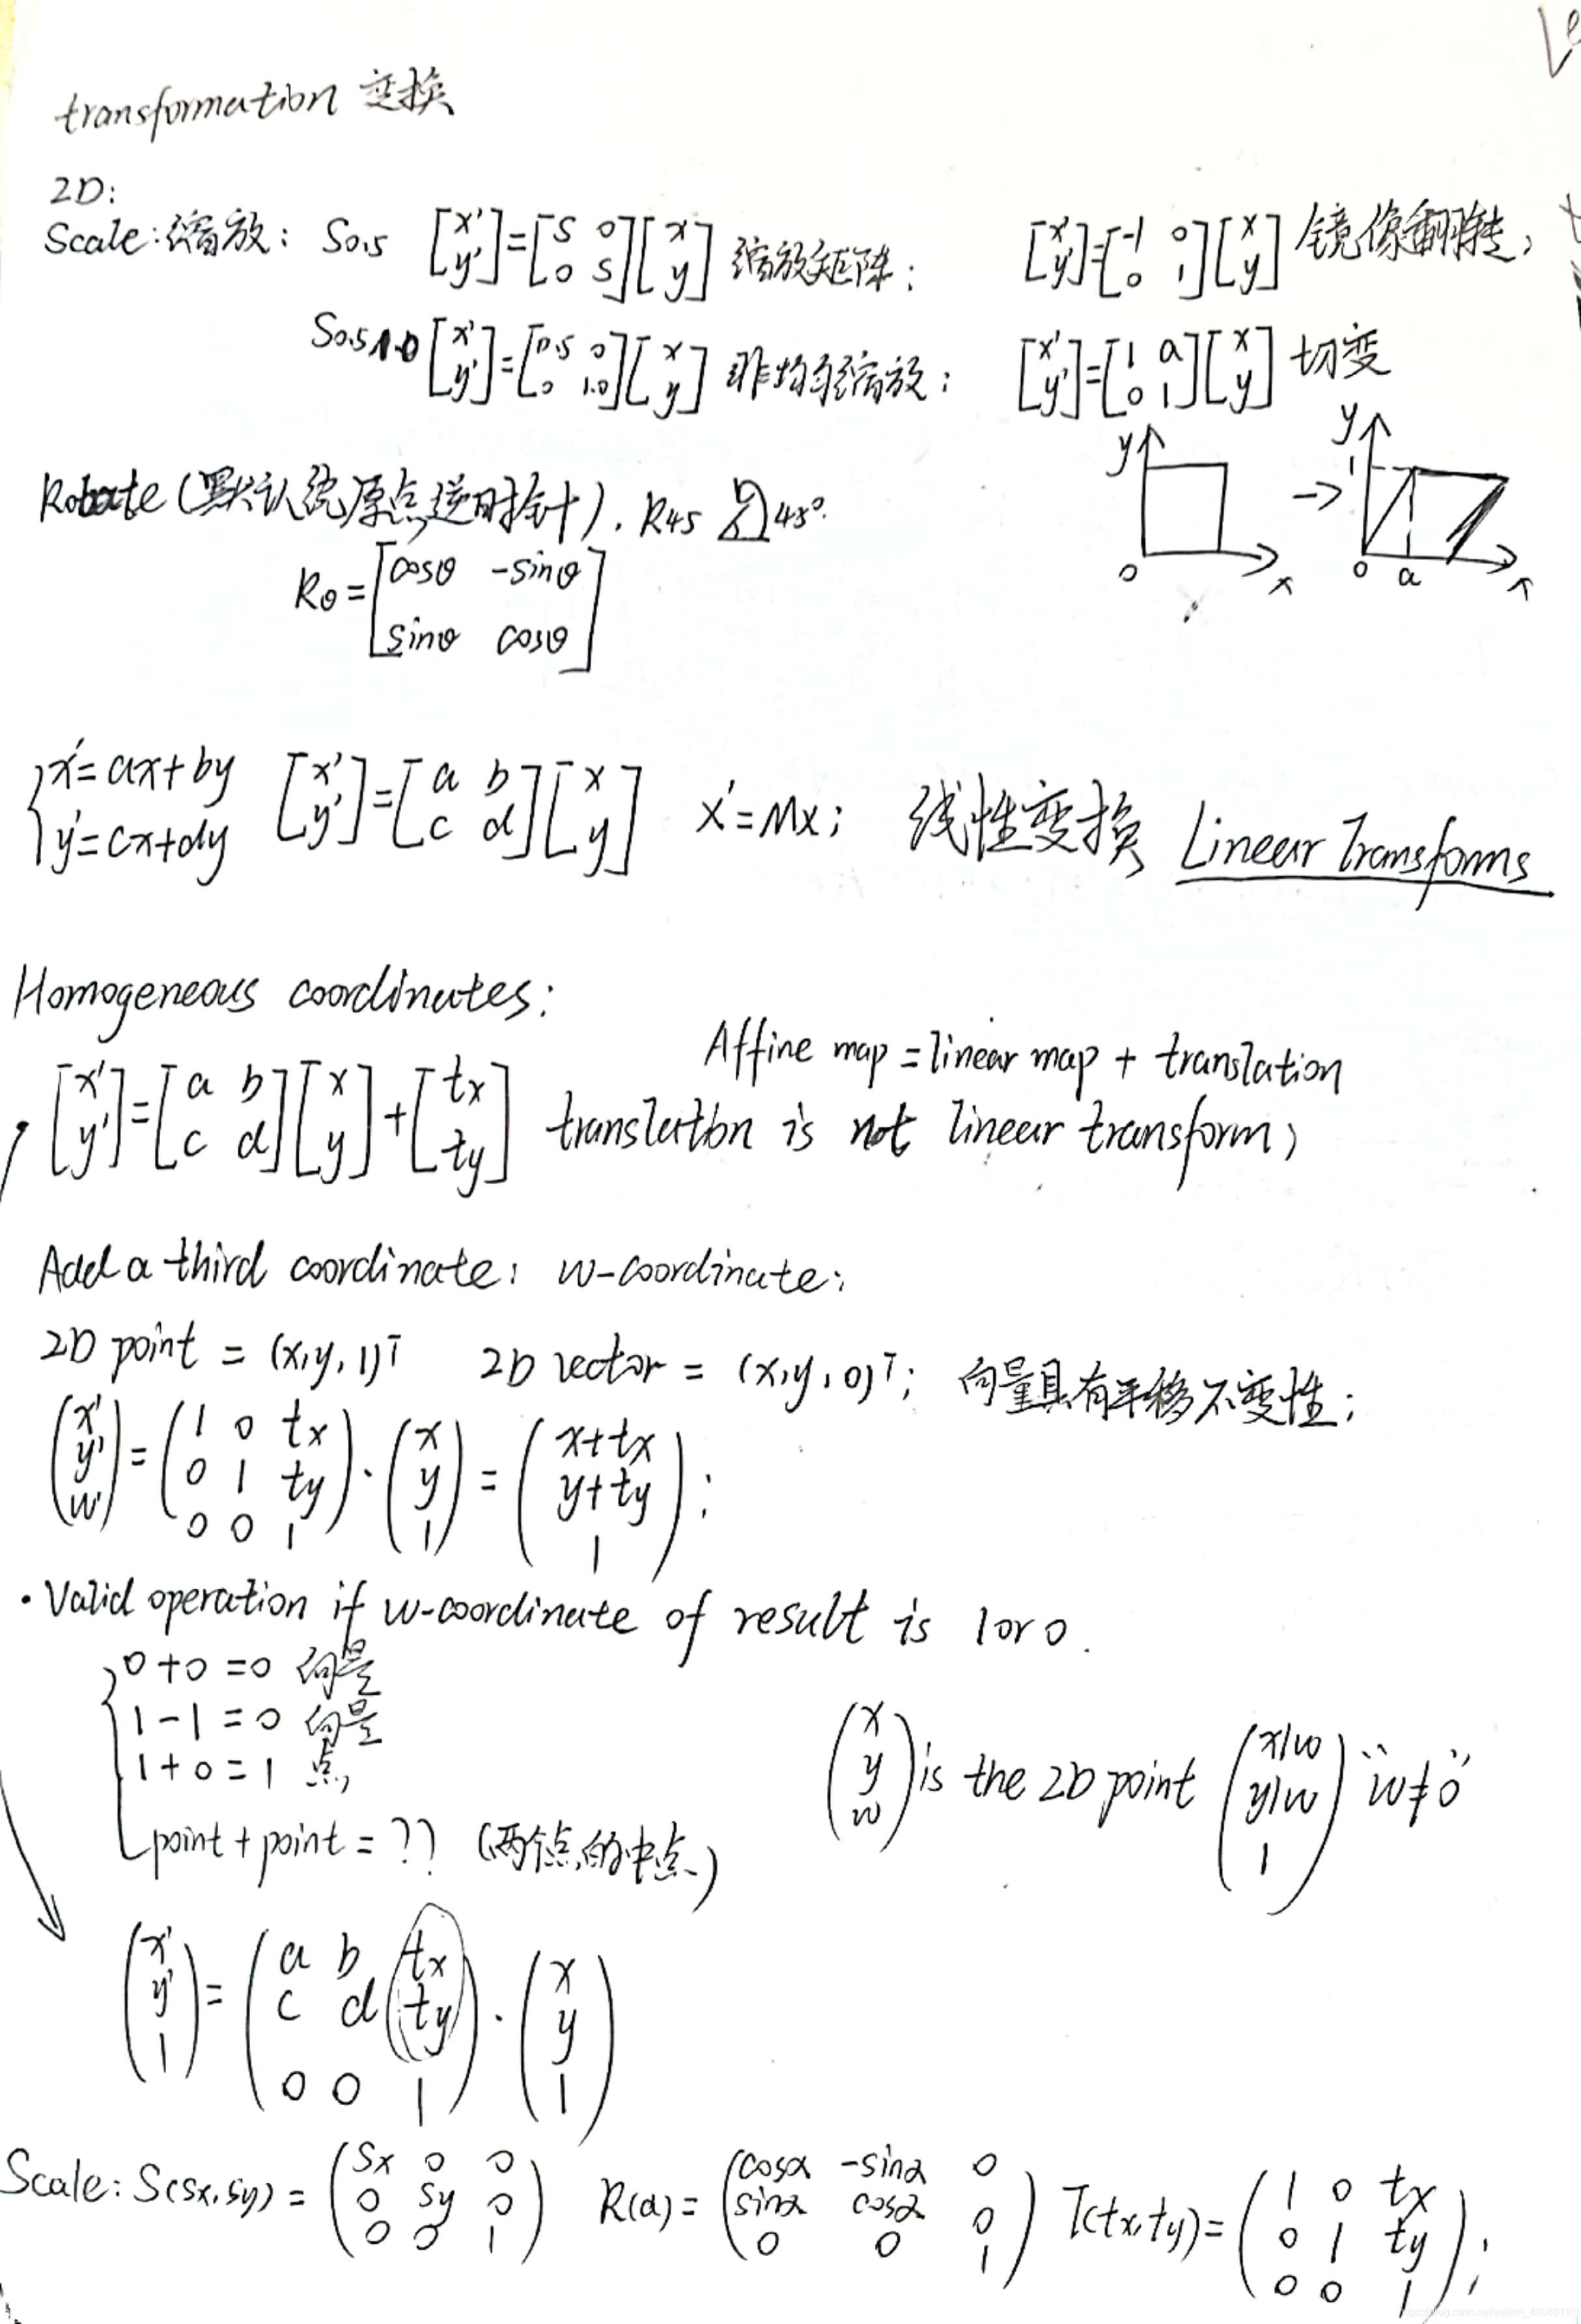 transformation 变换
2D:
Scale:缩放: S0.5 [x' y']=[s 0 0 s][x y] 缩放矩阵;
[x' y']=[-1 0 0 1][x y] 镜像翻转;
S0.5 1.0 [x' y']=[0.5 0 0 1.0][x y] 非均匀缩放;
[x' y']=[1 a 0 1][x y] 切变
y y
1
→
0 x 0 a x
Rotate (默认绕原点,逆时针). R45 45°.
Rθ=[cosθ -sinθ sinθ cosθ]
{x'=ax+by y'=cx+dy [x' y']=[a b c d][x y] x'=Mx; 线性变换 Linear Transforms
Homogeneous coordinates:
Affine map = linear map + translation
[x' y']=[a b c d][x y]+[tx ty] translation is not linear transform;
Add a third coordinate: w-coordinate:
2D point = (x,y,1)ᵀ 2D vector = (x,y,0)ᵀ; 向量具有平移不变性;
(x' y' w')=(1 0 tx 0 1 ty 0 0 1)·(x y 1)=(x+tx y+ty 1);
· Valid operation if w-coordinate of result is 1 or 0.
0+0=0 向量
1-1=0 向量
1+0=1 点
point+point=?? (两个点的中点)
(x y w) is the 2D point (x/w y/w 1) "w≠0"
(x' y' 1)=(a b tx c d ty 0 0 1)·(x y 1)
Scale: S(sx,sy)=(sx 0 0 0 sy 0 0 0 1) R(α)=(cosα -sinα 0 sinα cosα 0 0 0 1) T(tx,ty)=(1 0 tx 0 1 ty 0 0 1);